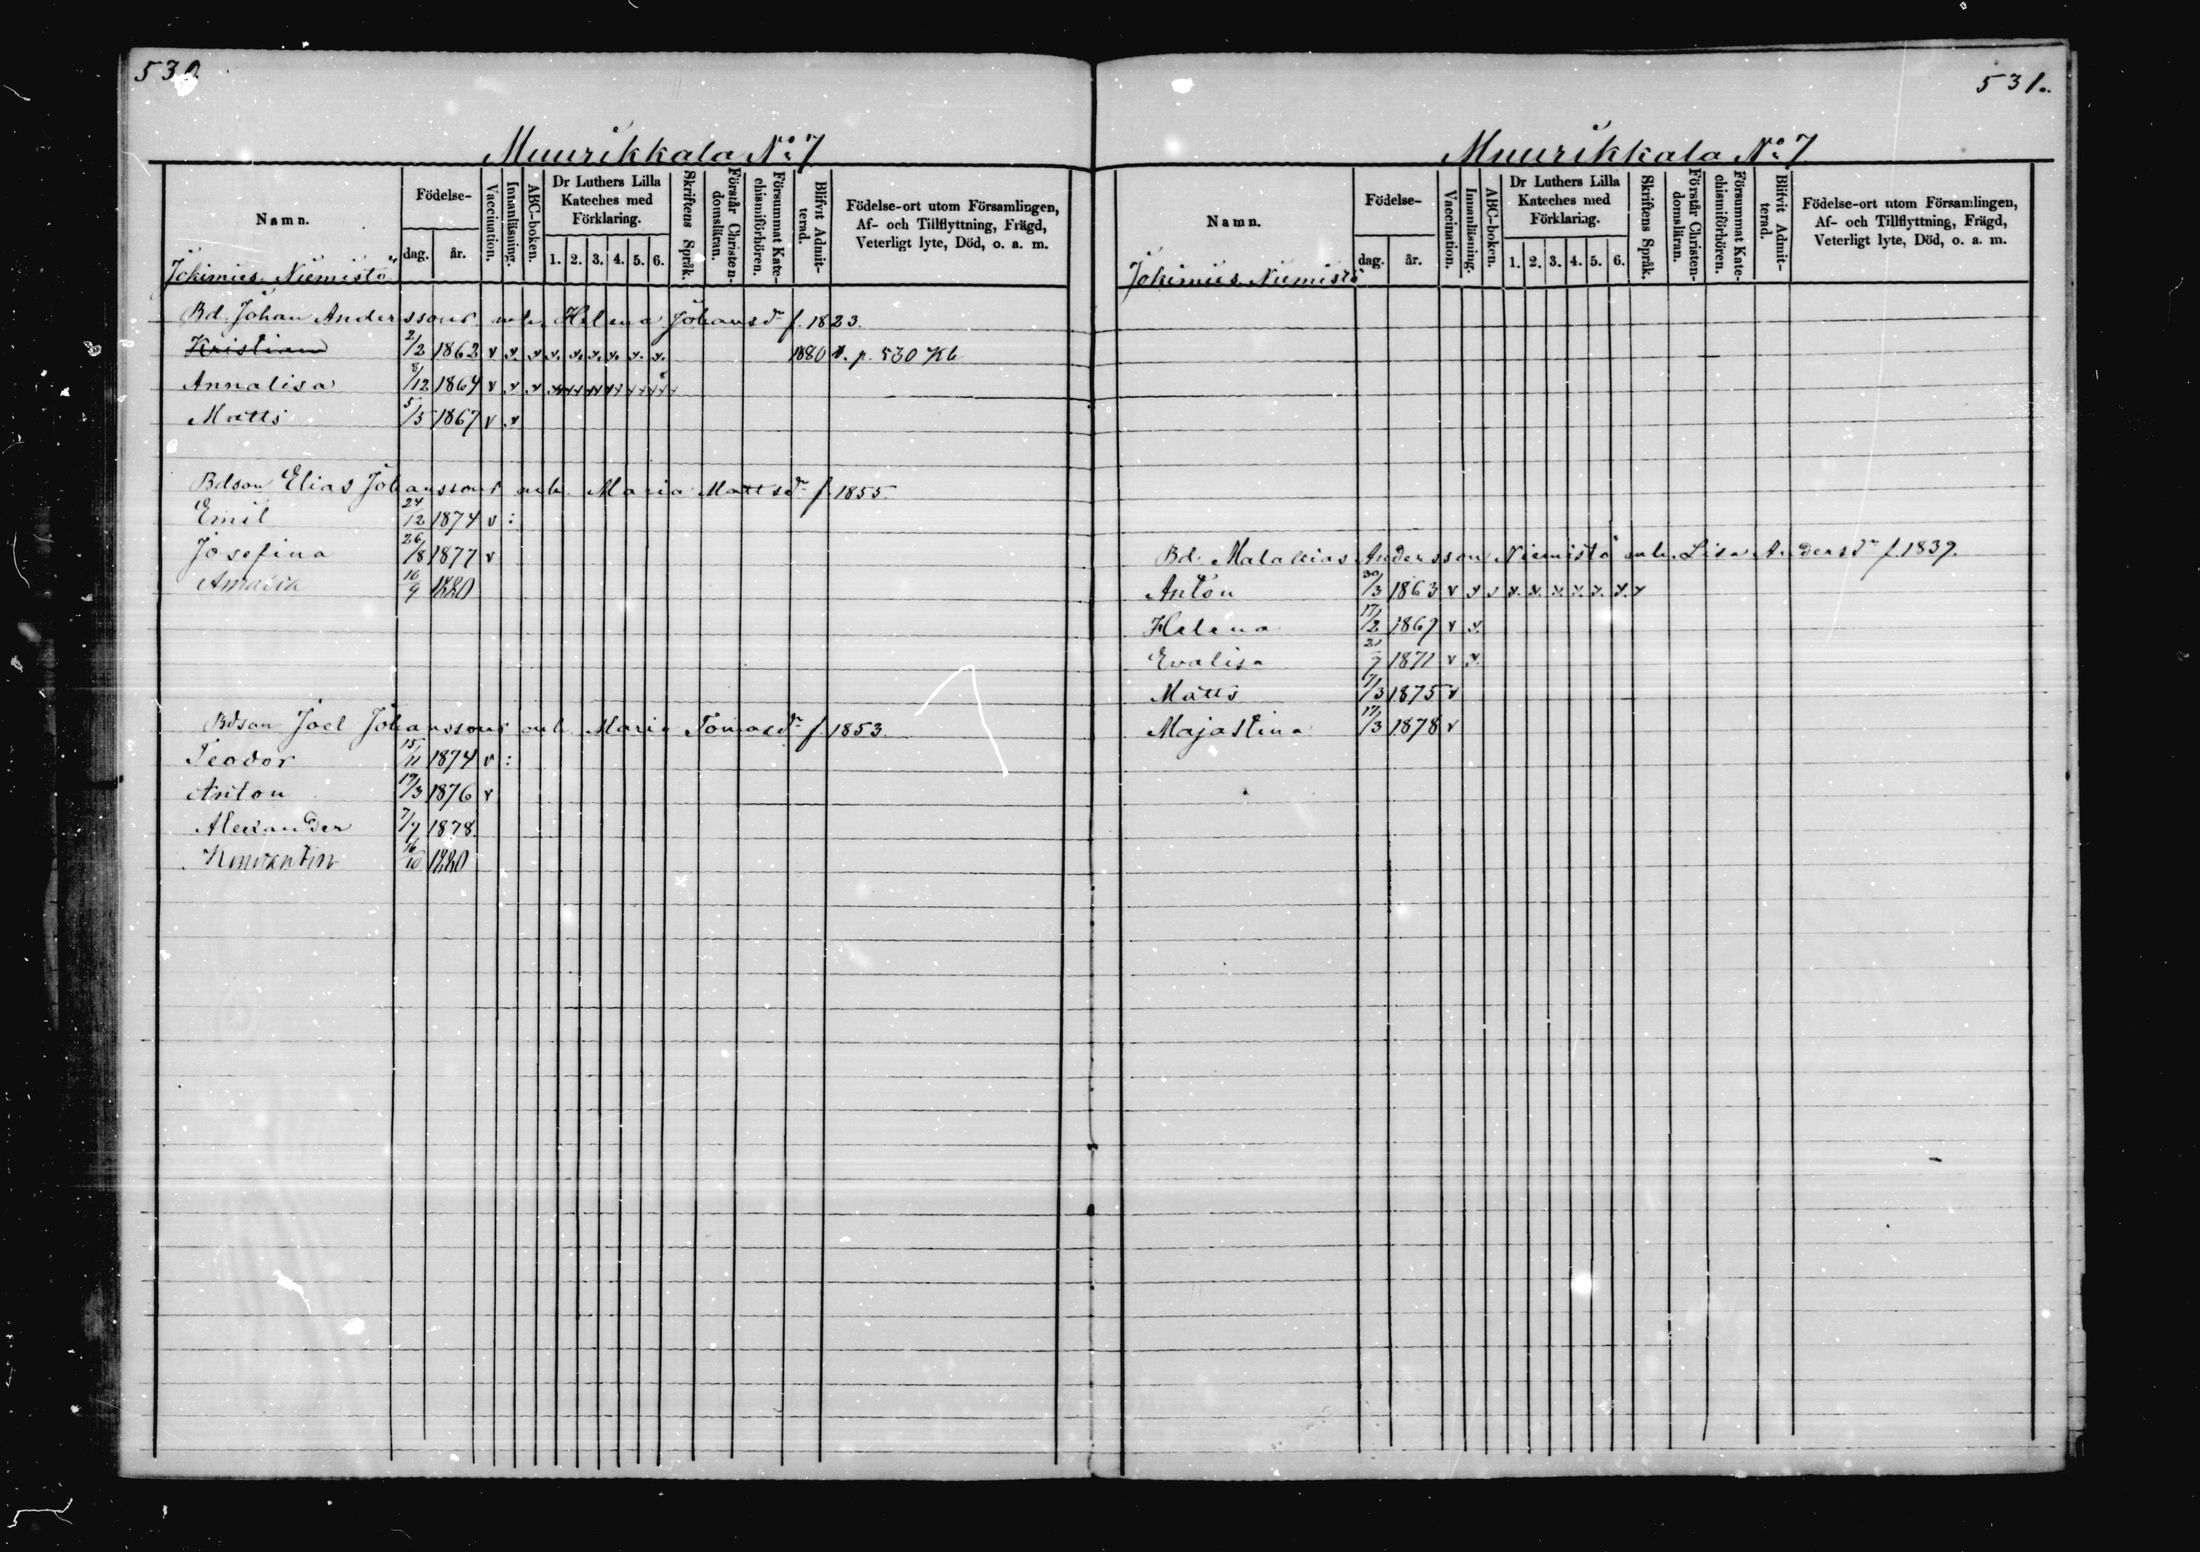 530
Muurikkala No 7
Namn.
Födelse-
dag.
år.
Vaccination.
Innanläsning.
ABC-boken.
Dr Luthers Lilla
Kateches med
Förklaring.
1. 2. 3. 4. 5. 6.
Skriftens Språk.
Förstår Christen-
domsläran.
Försummat Kate-
chismiförhören.
Blifvit Admit-
terad.
Födelse-ort utom Församlingen,
Af- och Tillflyttning, Frägd,
Veterligt lyte, Död, o. a. m.
Jokimies Niemistö
Bd. Johan Anderssons enk. Helena Johansdr f. 1823.
Kristian 2/2 1862 v v v v. v. v. v. v. v. 1880 v. p. 530 Kb
Annalisa 8/12 1864 v v v
Matts 5/5 1867 v v
Bdson Elias Johanssons enk. Maria Mattsdr f. 1855.
Emil 24/12 1874 v :
Josefina 26/8 1877 v
Amalia 16/9 1880
Bdson Joel Johanssons enk. Maria Tomasdr f. 1853.
Teodor 15/11 1874 v :
Anton 19/3 1876 v
Alexander 7/7 1878.
Konstantin 16/10 1880
531.
Muurikkala No 7
Namn.
Födelse-
dag.
år.
Vaccination.
Innanläsning.
ABC-boken.
Dr Luthers Lilla
Kateches med
Förklaring.
1. 2. 3. 4. 5. 6.
Skriftens Språk.
Förstår Christen-
domsläran.
Försummat Kate-
chismiförhören.
Blifvit Admit-
terad.
Födelse-ort utom Församlingen,
Af- och Tillflyttning, Frägd,
Veterligt lyte, Död, o. a. m.
Jokimies Niemistö
Bd. Malakias Andersson Niemistö enk. Lisa Andersdr f. 1839.
Anton 30/3 1863 v v v v. v. v. v. v. v. v
Helena 17/2 1867 v v.
Evalisa 21/7 1871 v v.
Matts 7/3 1875 v
Majastina 17/3 1878 v